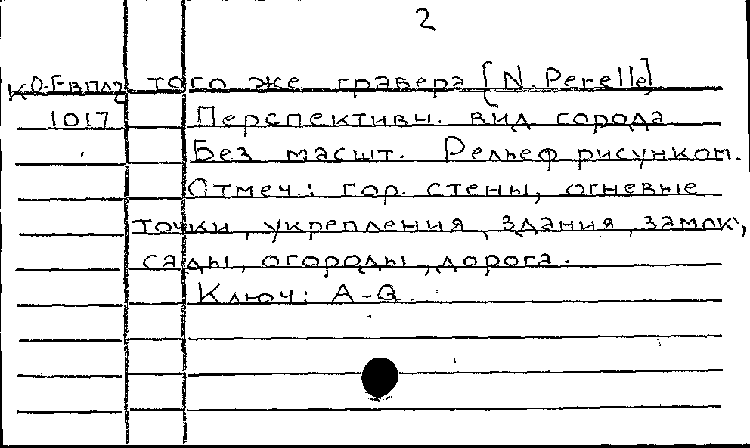 2
К О-Евпл2 того же гравера [N. Perelle]
1017 Перспективн. вид города
Без масшт. Рельеф рисунком.
Отмеч: гор. стены, огневые
точки, укрепления, здания, замок,
сады, огороды, дорога.
Ключ: A-Q.